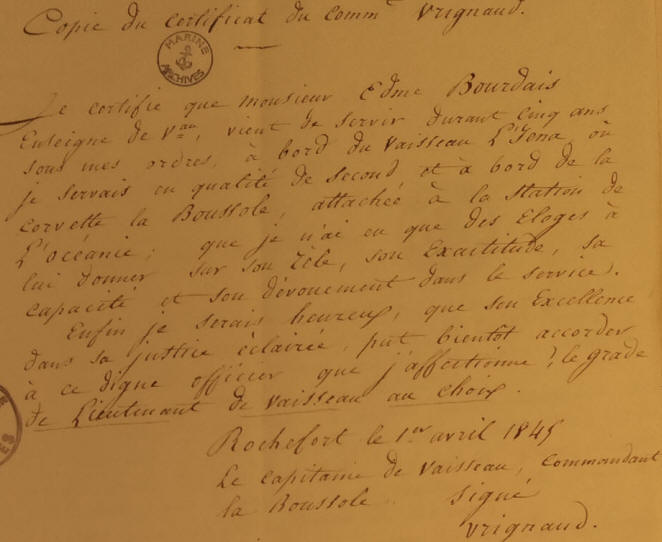 Copie du certificat du comm^t Vrignaud.
MARINE
ARCHIVES
Je certifie que monsieur Edme Bourdais
Enseigne de V^au, vient de servir durant Cinq ans
sous mes ordres, à bord du Vaisseau L'Iena où
je servais en qualité de second et à bord de la
corvette la Boussole, attachée à la station de
L'océanie; que je n'ai eu que des Eloges à
lui donner sur son Zèle, son Exactitude, sa
capacité et son dévouement dans le service.
Enfin je serais heureux, que son Excellence
dans sa justice eclairée, put bientôt accorder
à ce digne officier que j'affectionne, le grade
de Lieutenant de vaisseau au choix.
Rochefort le 1^er avril 1845
Le capitaine de Vaisseau, commandant
la Boussole. Signé
Vrignaud.